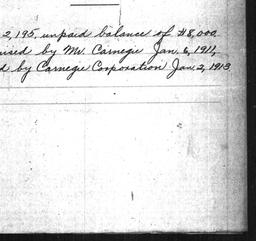 2,195, unpaid balance of $8,000
ised by Mr. Carnegie Jan. 6, 1911,
d by Carnegie Corporation Jan 2, 1913